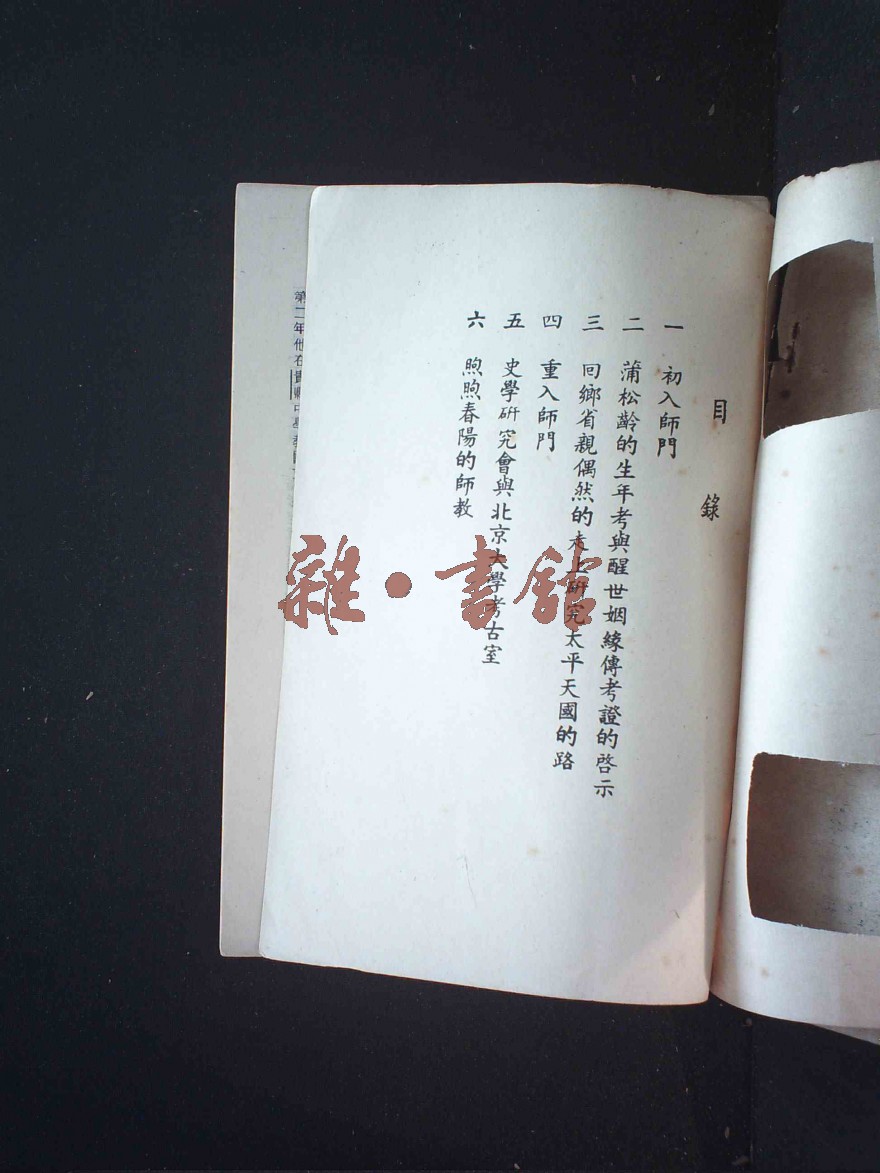 目錄
一 初入師門
二 蒲松齡的生年考與醒世姻緣傳考證的啓示
三 回鄉省親偶然的走上研究太平天國的路
四 重入師門
五 史學研究會與北京大學考古室
六 煦煦春陽的師教
第二年他在貴縣中學
雜·書館